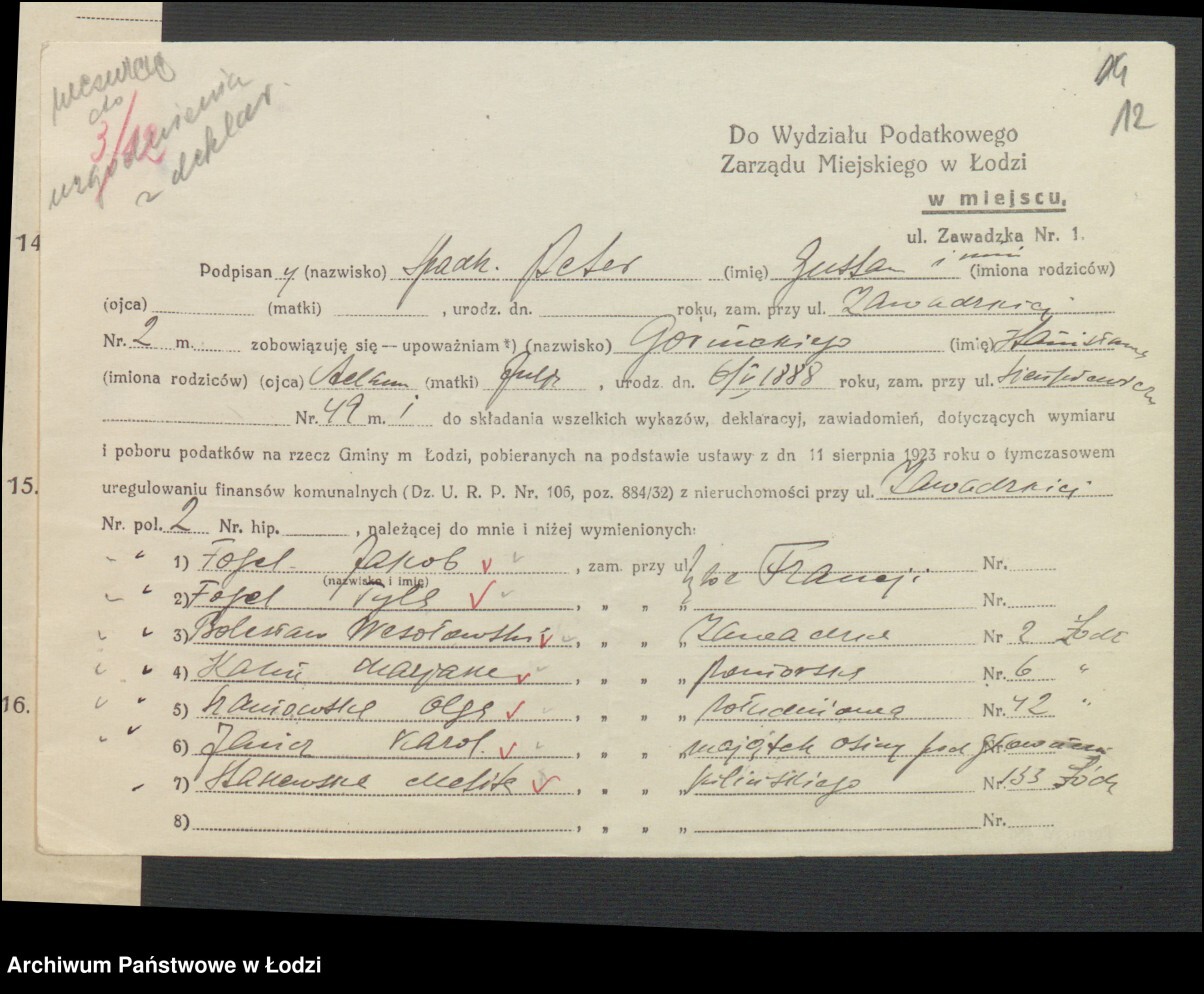 do
3/12
uzgodnienia
z deklar.
14
12
Do Wydziału Podatkowego
Zarządu Miejskiego w Łodzi
w miejscu,
ul. Zawadzka Nr. 1.
14
Podpisan y (nazwisko) Spadk. (imię) Gustaw i inni (imiona rodziców)
(ojca) (matki) , urodz. dn. roku, zam. przy ul. Zawadzkiej
Nr. 2 m. zobowiązuję się — upoważniam *) (nazwisko) Gosińskiego (imię) Stanisława
(imiona rodziców) (ojca) (matki) , urodz. dn. 6/V 1888 roku, zam. przy ul. Sienkiewicza
Nr. 49 m. i do składania wszelkich wykazów, deklaracyj, zawiadomień, dotyczących wymiaru
i poboru podatków na rzecz Gminy m Łodzi, pobieranych na podstawie ustawy z dn 11 sierpnia 1923 roku o tymczasowem
15.
uregulowaniu finansów komunalnych (Dz. U. R. P. Nr. 106, poz. 884/32) z nieruchomości przy ul. Zawadzkiej
Nr. pol. 2 Nr. hip. , należącej do mnie i niżej wymienionych:
" 1) Fogel Jakob , zam. przy ul. Francji Nr.
(nazwisko i imię)
" 2) Fogel Tyla , „ „ „ Nr.
" 3) Bolesław Wesołowski , „ „ „ Zawadzka Nr 2 Łódź
" 4) Marjanna , „ „ „ Pomorska Nr. 6 "
16.
" 5) Olga , „ „ „ Południowa Nr. 42 "
" 6) Karol. , „ „ „ majątek Osiny pod Głownem Nr.
7) , „ „ „ Kilińskiego Nr. 133 Łódź
8) , „ „ „ Nr.
Archiwum Państwowe w Łodzi